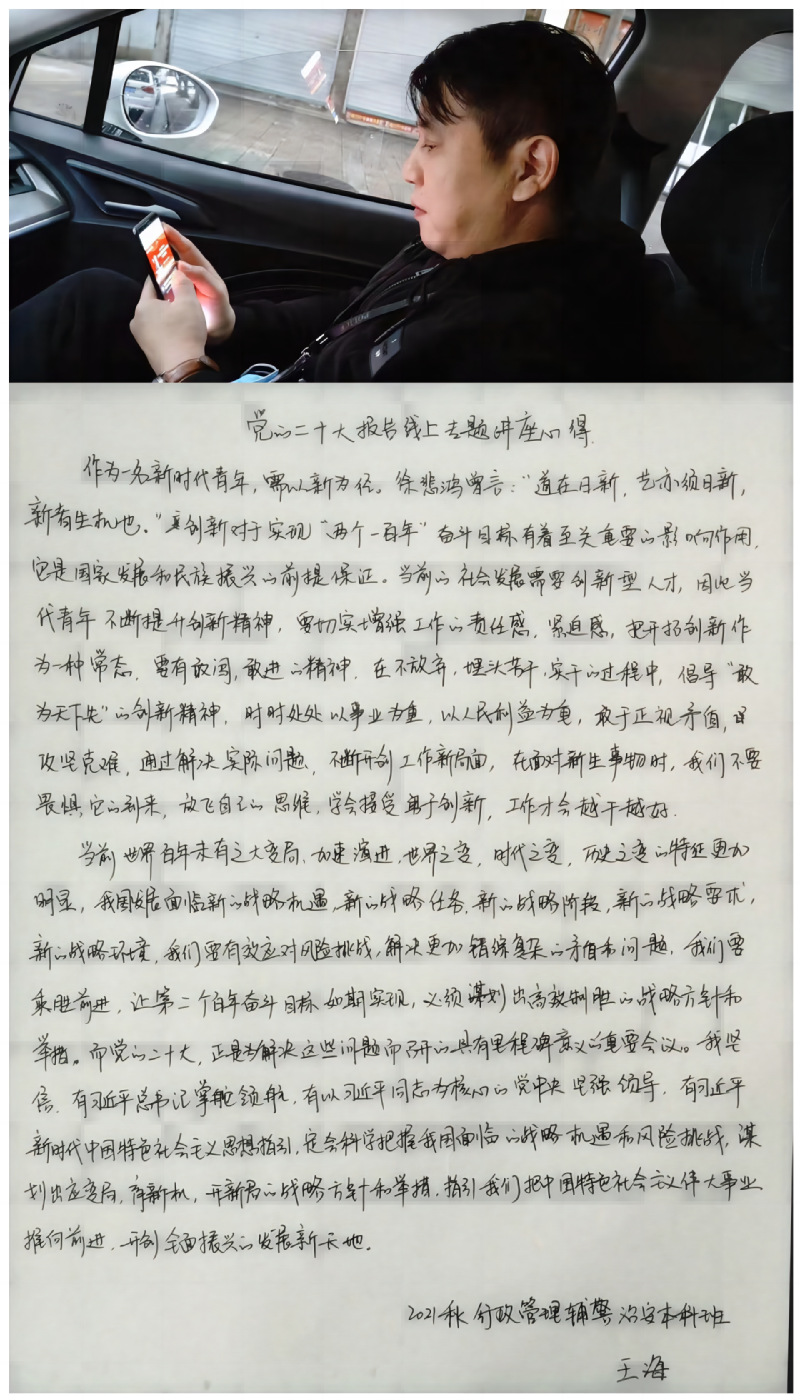 POLICE
党的二十大报告线上专题讲座心得
作为一名新时代青年，需以新为径。徐悲鸿曾言：“道在日新，艺亦须日新，
新者生机也。”创新对于实现“两个一百年”奋斗目标有着至关重要的影响作用，
它是国家发展和民族振兴的前提保证。当前的社会发展需要创新型人才，因此当
代青年不断提升创新精神，要切实增强工作的责任感、紧迫感，把开拓创新作
为一种常态，要有敢闯，敢进的精神，在不放弃，埋头苦干，实干的过程中，倡导“敢
为天下先”的创新精神，时时处处以事业为重，以人民利益为重，敢于正视矛盾，
攻坚克难，通过解决实际问题，不断开创工作新局面，在面对新生事物时，我们不要
畏惧它的到来，放飞自己的思维，学会接受勇于创新，工作才会越干越好．
当前世界百年未有之大变局，加速演进，世界之变，时代之变，历史之变的特征更加
明显，我国发展面临新的战略机遇，新的战略任务，新的战略阶段，新的战略要求，
新的战略环境，我们要有效应对风险挑战，解决更加错综复杂的矛盾和问题，我们要
乘胜前进，让第二个百年奋斗目标如期实现，必须谋划出高效制胜的战略方针和
举措。而党的二十大，正是为解决这些问题而召开的具有里程碑意义的重要会议。我坚
信，有习近平总书记掌舵领航，有以习近平同志为核心的党中央坚强领导，有习近平
新时代中国特色社会主义思想指引，定会科学把握我国面临的战略机遇和风险挑战，谋
划出应变局，育新机，开新局的战略方针和举措，指引我们把中国特色社会主义伟大事业
推向前进，开创全面振兴的发展新天地。
2021秋行政管理辅警治安本科班
王海